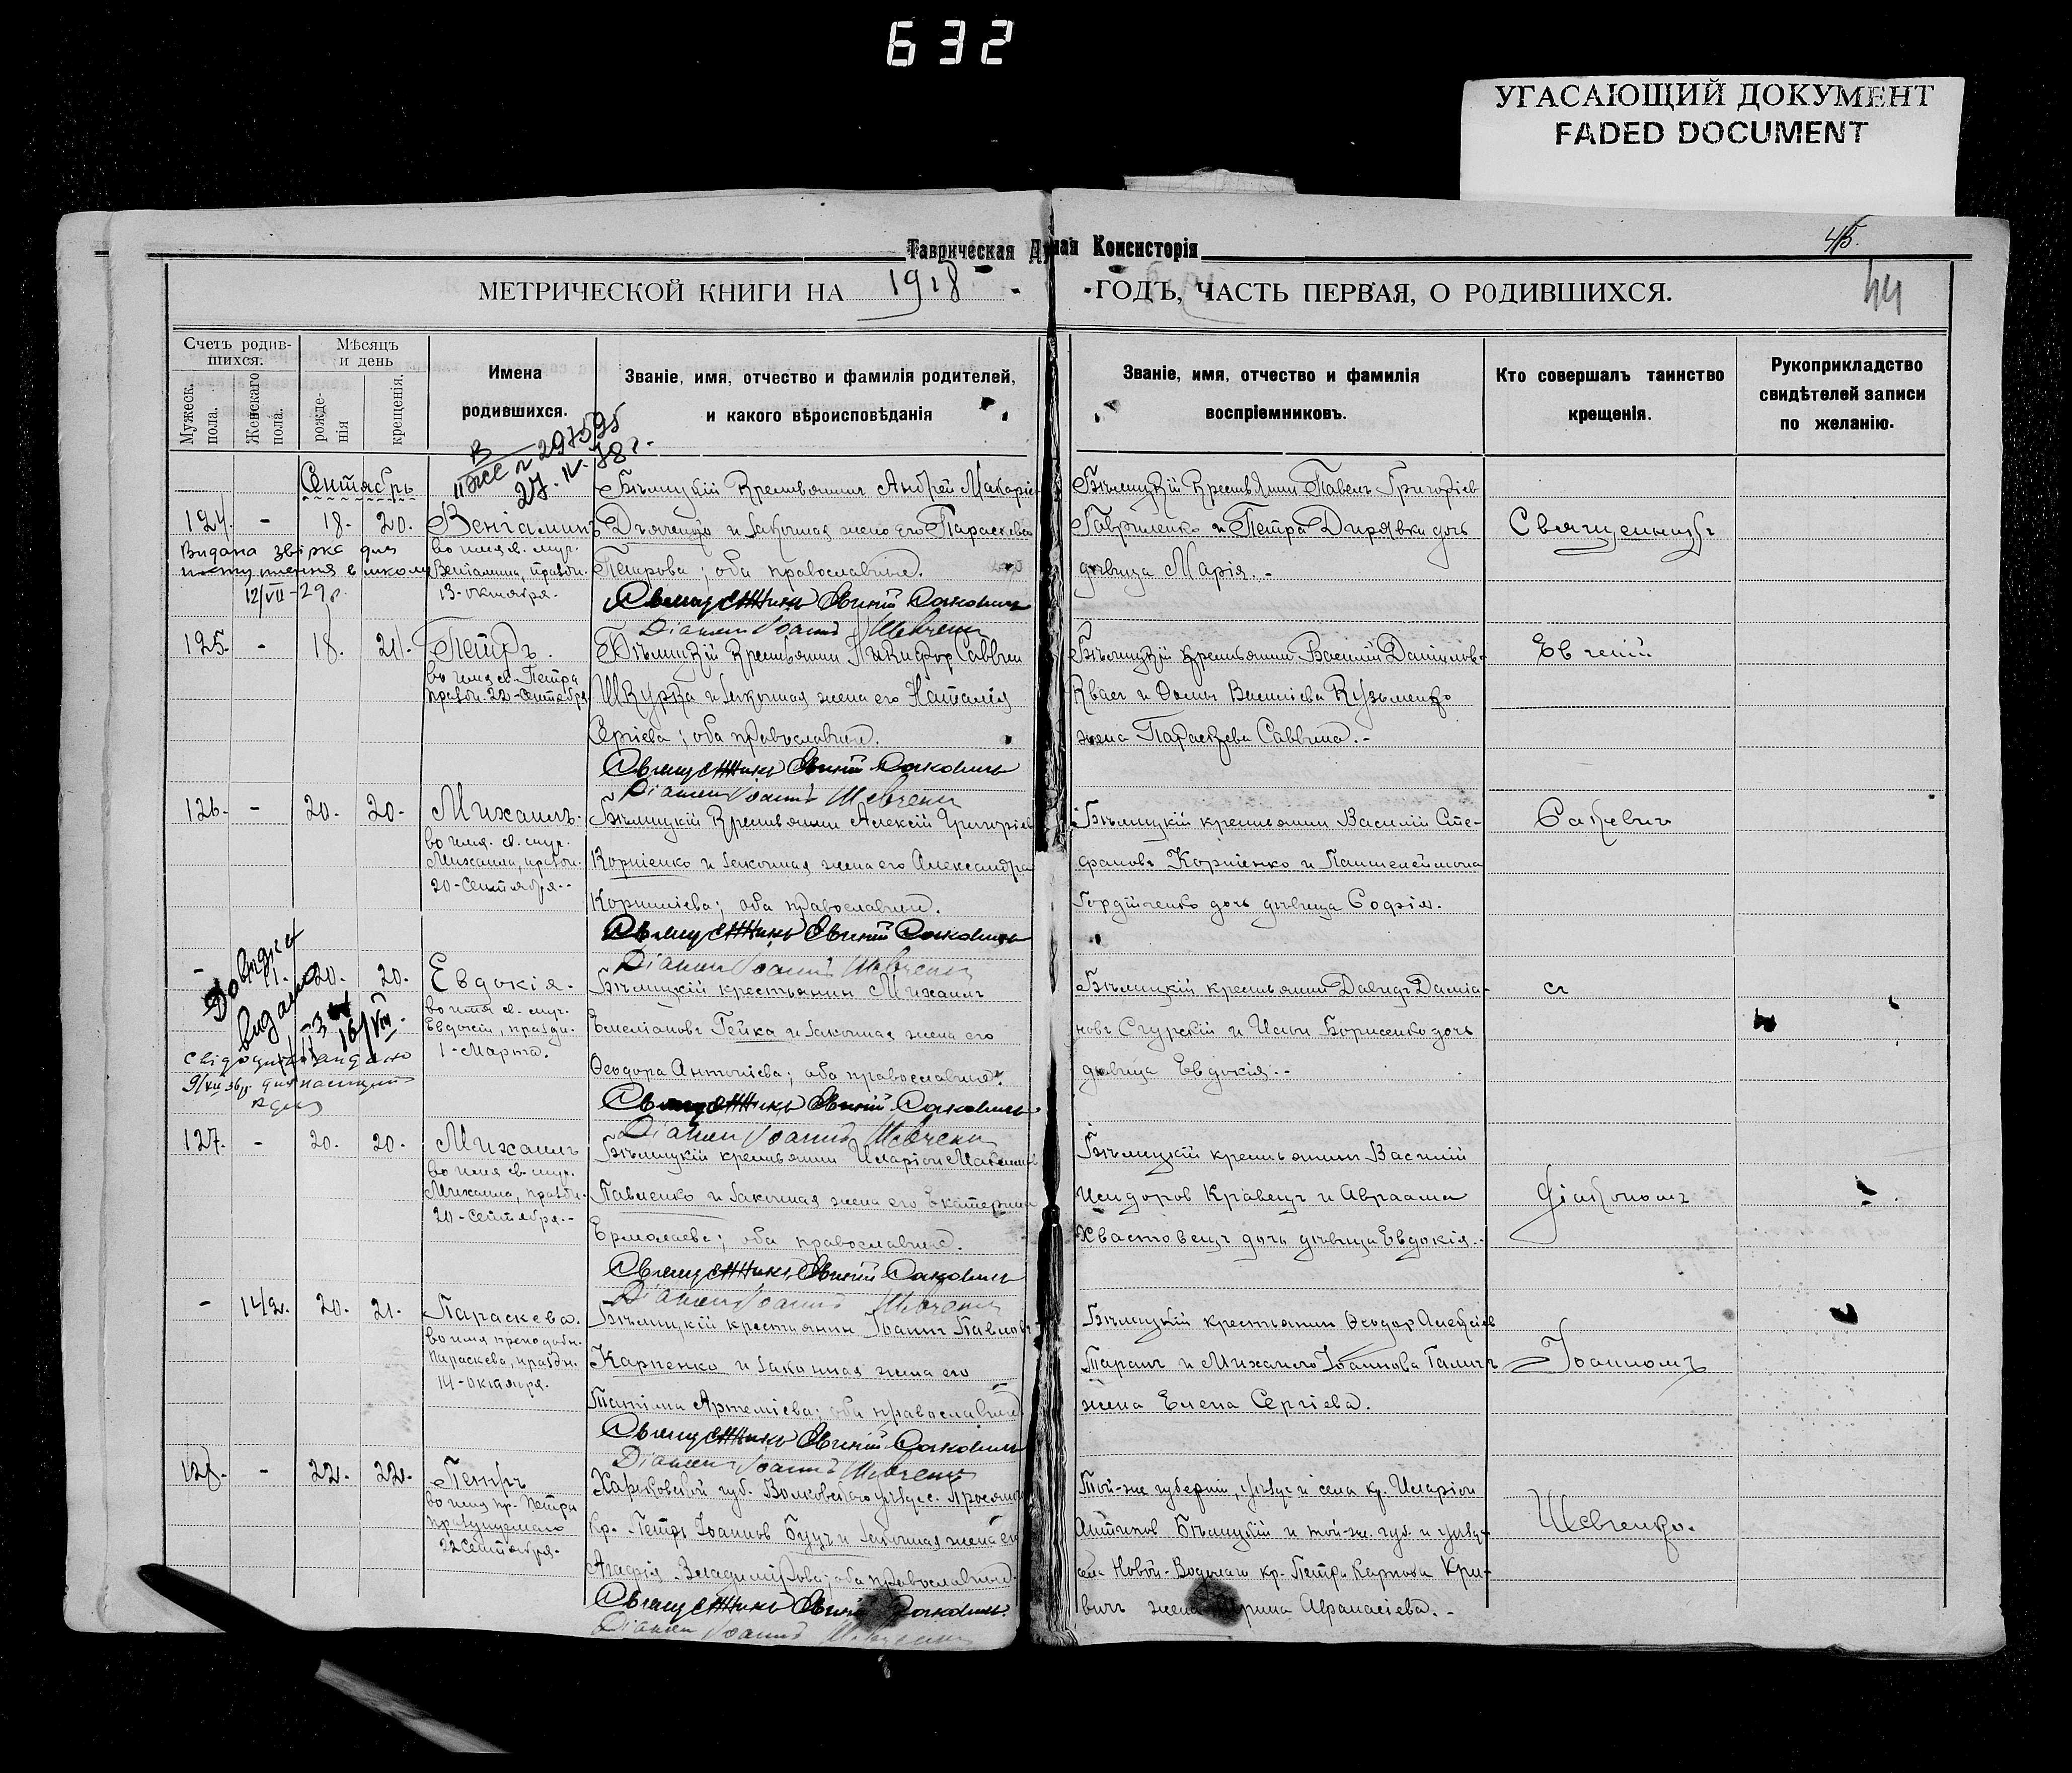 632
УГАСАЮЩИЙ ДОКУМЕНТ
FADED DOCUMENT
Таврическая Духная Консисторія
45.
44
МЕТРИЧЕСКОЙ КНИГИ НА 1918 ГОДЪ, ЧАСТЬ ПЕРВАЯ, О РОДИВШИХСЯ.
Счетъ родив-
шихся.
Мужеск. пола.
Женскаго пола.
Мѣсяцъ
и день
рожде-
нія
крещенія.
Имена
родившихся.
Званіе, имя, отчество и фамилія родителей,
и какого вѣроисповѣданія
Званіе, имя, отчество и фамилія
воспріемниковъ.
Кто совершалъ таинство
крещенія.
Рукоприкладство
свидѣтелей записи
по желанію.
Сентябрь
124. - 18. 20. Веніаминъ
во имя св. муч.
Веніамина, праздн.
13-октября.
12/VII-29 р.
Бѣлицкій крестьянинъ Андрей Макаріев
Дьяченко и законная жена его Параскева
Петрова; оба православные.
Священникъ Евгеній Сакевичъ
Діаконъ Іоаннъ Шевченко
Бѣлицкій крестьянинъ Павелъ Григоріев
Гавриленко и Петра Дирявки дочь
дѣвица Марія.-
Священникъ
125. - 18. 21. Петръ.
во имя св. Петра
праздн. 22-Сентября
Бѣлицкій крестьянинъ Никифор Саввин
Шкурка и законная жена его Наталія
Сергіева; оба православные.
Священникъ Евгеній Сакевичъ
Діаконъ Іоаннъ Шевченко
Бѣлицкій крестьянинъ Василій Даніилов-
Квас и Ѳомы Василіева Кузьменко
жена Параскева Саввина.-
Евгеній
126. - 20. 20. Михаилъ.
во имя св. муч.
Михаила, праздн.
20-Сентября.-
Бѣлицкій крестьянинъ Алексій Григоріев
Корніенко и законная жена его Александра
Корниліева; оба православные.
Священникъ Евгеній Сакевичъ
Діаконъ Іоаннъ Шевченко
Бѣлицкій крестьянинъ Василій Сте-
фановъ Корніенко и Пантелеймона
Гордіенко дочь дѣвица Софія.
Сакевич
Довидка
видана
16/VIII
- 20. 20. Евдокія.
во имя св. муч.
Евдокіи, праздн.
1-Марта.
Бѣлицкій крестьянин Михаилъ
Емеліановъ Гейка и законная жена его
Ѳеодора Антоніева; оба православные.
Священникъ Евгеній Сакевичъ
Діаконъ Іоаннъ Шевченко
Бѣлицкій крестьянинъ Давидъ Даміа-
новъ Сгурскій и Ильи Борисенко дочь
дѣвица Евдокія.-
съ
127. - 20. 20. Михаилъ
во имя св. муч.
Михаила, праздн.
20-Сентября.-
Бѣлицкій крестьянинъ Иларіон Максимов
Павленко и законная жена его Екатерина
Ермолаева; оба православные.
Священникъ Евгеній Сакевичъ
Діаконъ Іоаннъ Шевченко
Бѣлицкій крестьянинъ Василій
Исидоров Кравецъ и Авраама
Хвастовецъ дочь дѣвица Евдокія.-
Діакономъ
- 142. 20. 21. Параскева.
во имя преподобн.
Параскева, праздн.
14-октября.
Бѣлицкій крестьянин Іоаннъ Павловъ
Карпенко и законная жена его
Татіана Артеміева; оба православные
Священникъ Евгеній Сакевичъ
Діаконъ Іоаннъ Шевченко
Бѣлицкій крестьянин Ѳеодор Алексіев
Таранъ и Михаила Іоаннова Галичъ
жена Елена Сергіева.
Іоанномъ
128. - 22. 22. Петръ
во имя пр. Петра
празднуемаго
22 Сентября.
Харьковской губ. Волковскаго уѣзда с.
Кр. Петръ Іоаннов Буцъ и законная жена его
Агафія Владимірова; оба православные.
Священникъ Евгеній Сакевичъ
Діаконъ Іоаннъ Шевченко
Той-же губерніи, уѣзда и села кр. Иларіон
Антипов Бѣлицкій и той-же губ. и уѣзда
села Новой-Водолаги кр. Петра Карпова Кри-
вичъ жена Ирина Афанасіева.-
Шевченко.